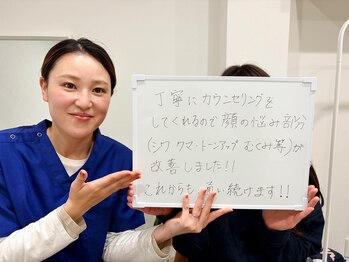 丁寧にカウンセリングを
してくれるので顔の悩み部分
(シワ クマ・トーンアップ むくみ等)が
改善しました!!
これからも通い続けます!!